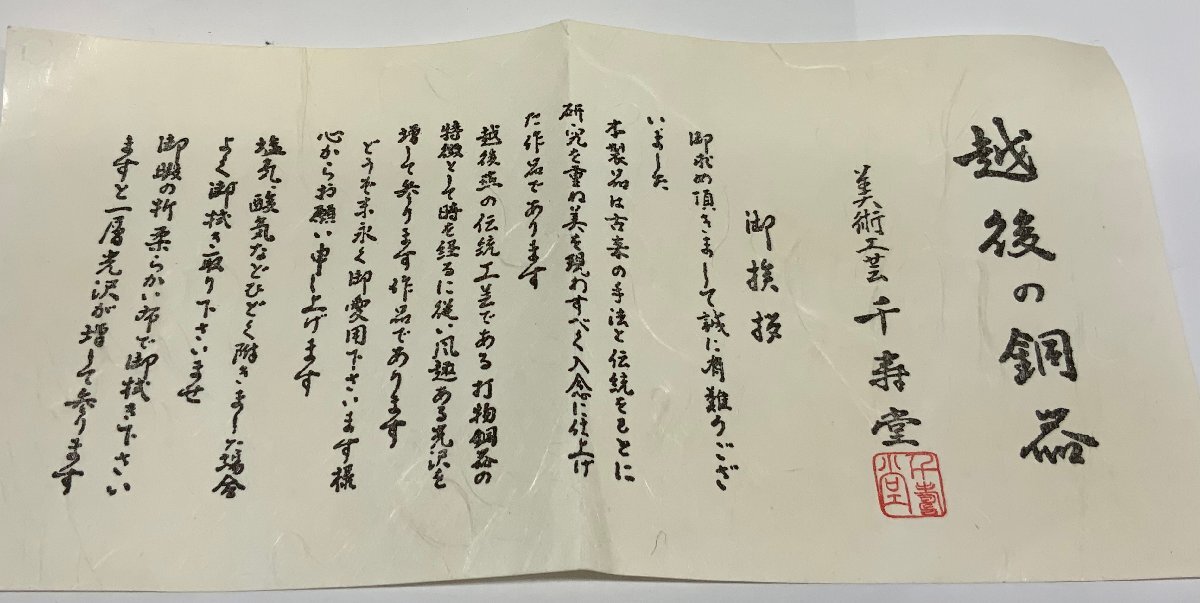 越後の銅器
美術工芸 千寿堂
千壽堂
御挨拶
御求め頂きまして誠に有難うござ
いました
本製品は古来の手法と伝統をもとに
研究を重ね美を現わすべく入念に仕上げ
た作品であります
越後燕の伝統工芸である打物銅器の
特徴として時を経るに従い風趣ある光沢を
増して参ります作品であります
どうぞ末永く御愛用下さいます様
心からお願い申し上げます
塩気、酸気などひどく附きました場合
よく御拭き取り下さいませ
御暇の折柔らかい布で御拭き下さい
ますと一層光沢が増して参ります